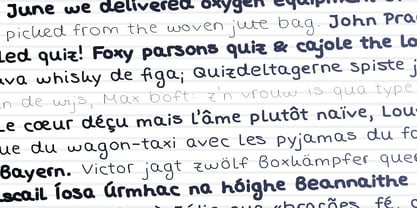 June we delivered oxygen
picked from the woven jute bag. John
led quiz! Foxy parsons quiz & cajole the
whisky de figa; Quizdeltagerne spiste
de wijs, Max boft: z'n vrouw is qua type
Le cœur déçu mais l'âme plutôt naïve,
du wagon-taxi avec les pyjamas du
Bayern. Victor jagt zwölf Boxkämpfer
Íosa Úrmhac na hÓighe Beannaithe